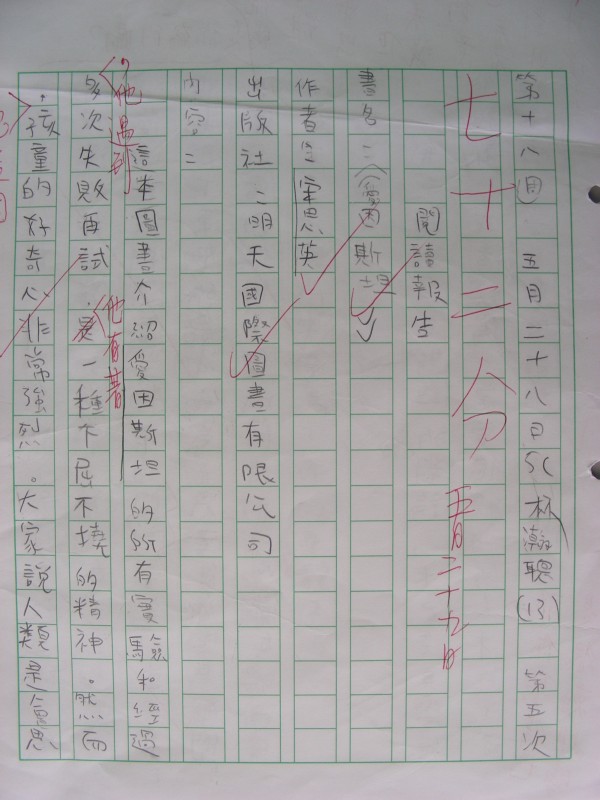 第十八週 五月二十八日 5C 林瀚聰(13) 第五次
七十二分 五月二十九日
閱讀報告
書名:《愛因斯坦》
作者:宋思英
出版社:明天國際圖書有限公司
內容:
這本圖書介紹愛因斯坦的所有實驗和經過
,他遇到
多次失敗再試,是一種不屈不撓的精神。然而
他有著
,孩童的好奇心非常強烈。大家說人類是會思